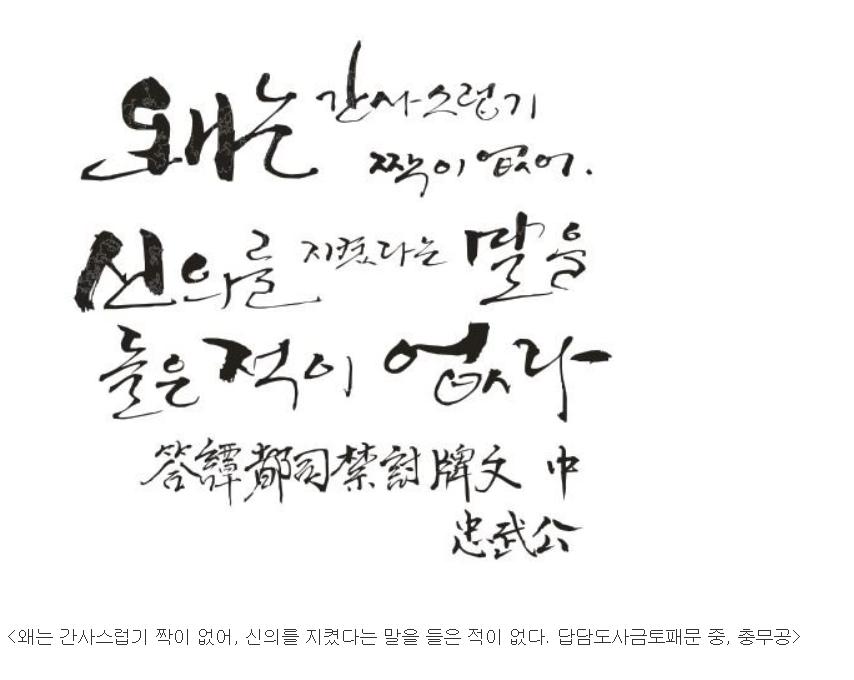 왜는 간사스럽기
짝이 없어.
신의를 지켰다는 말을
들은 적이 없다
答譚都司禁討牌文 中
忠武公
<왜는 간사스럽기 짝이 없어, 신의를 지켰다는 말을 들은 적이 없다. 답담도사금토패문 중, 충무공>